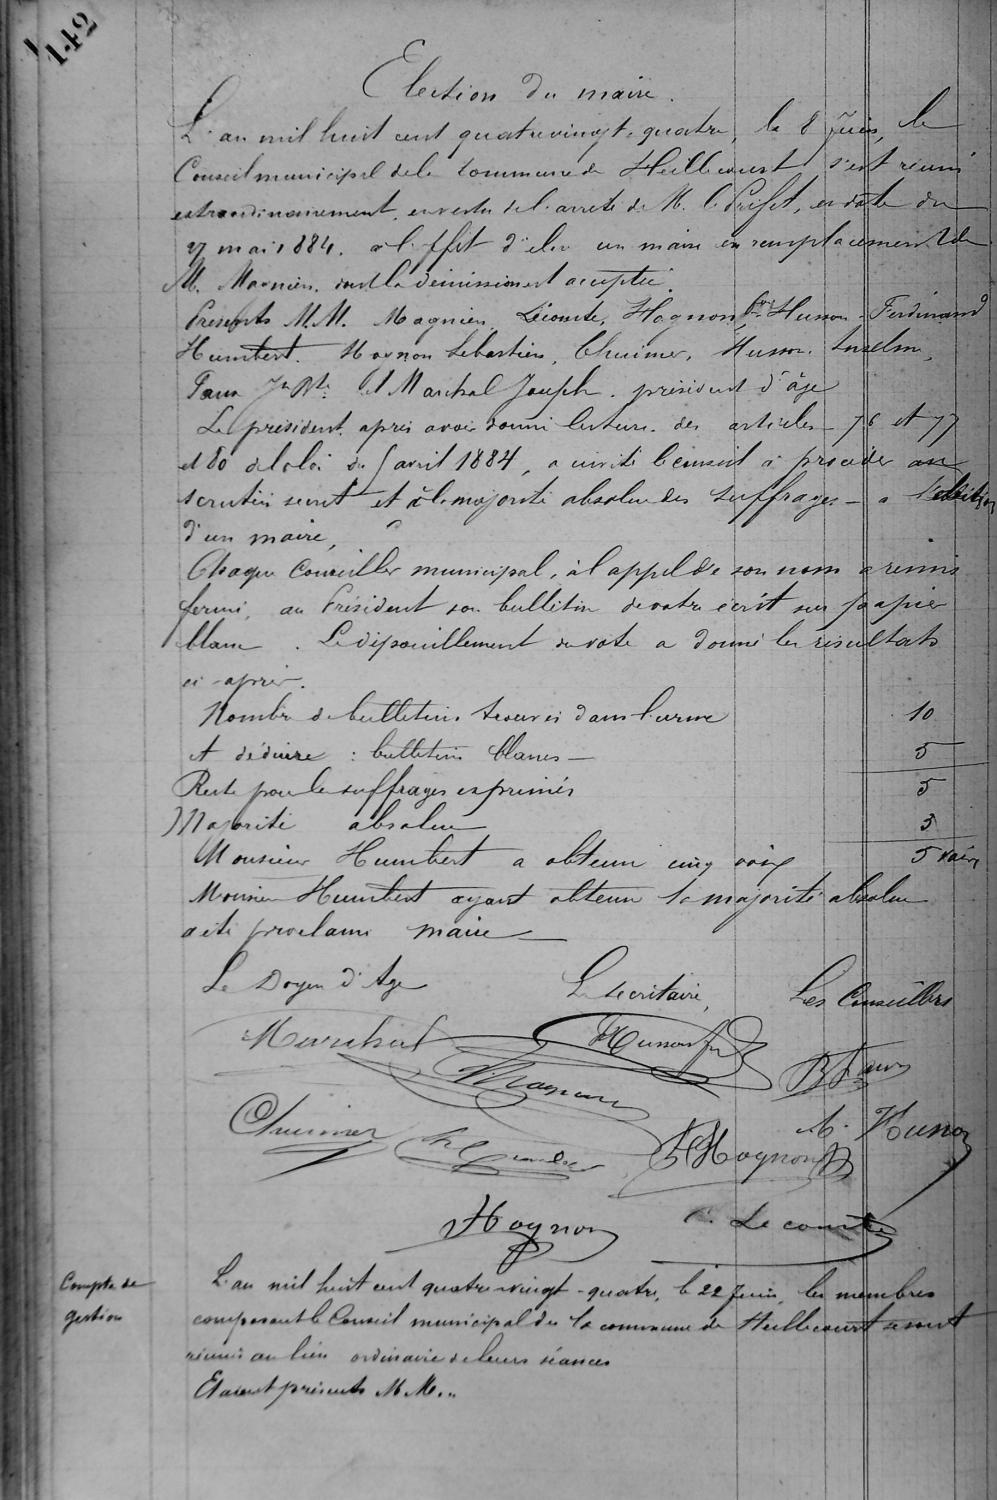 142
Election du maire.
L'an mil huit cent quatrevingt-quatre, le 8 Juin, le
Conseil municipal de la commune de Heillecourt s'est réuni
extraordinairement, en vertu de l'arrêté de M. le Préfet, en date du
27 mai 1884, à l'effet d'élire un maire en remplacement de
M. Magnien, dont la démission est acceptée.
Présents M.M. Magnien, Lecomte, Hognon fois, Husson Ferdinand
Humbert, Hognon Sébastien, Chuimer, Husson Anselme,
Faux Jn Bte et Marchal Joseph, président d'âge
Le président, après avoir donné lecture des articles 76 et 77
et 80 de la loi du 5 avril 1884, a invité le conseil à procéder au
scrutin secret et à la majorité absolue des suffrages à l'élection
d'un maire,
Chaque Conseiller municipal, à l'appel de son nom a remis
fermé, au Président son bulletin de vote écrit sur papier
blanc. Le dépouillement du vote a donné les résultats
ci-après.
Nombre de bulletins trouvés dans l'urne 10
A déduire : bulletins blancs 5
Reste pour les suffrages exprimés 5
Majorité absolue 3
Monsieur Humbert a obtenu cinq voix 5 voix
Monsieur Humbert ayant obtenu la majorité absolue
a été proclamé maire
Le Doyen d'Age Le secrétaire, Les Conseillers
Marchal Husson fd
Magnien B Faux
Chuimer Hognon A. Husson
Hognon C. Lecomte
Compte de
gestion
L'an mil huit cent quatre-vingt-quatre, le 22 Juin, les membres
composant le Conseil municipal de la commune de Heillecourt se sont
réunis au lieu ordinaire de leurs séances
Etaient présents M.M...